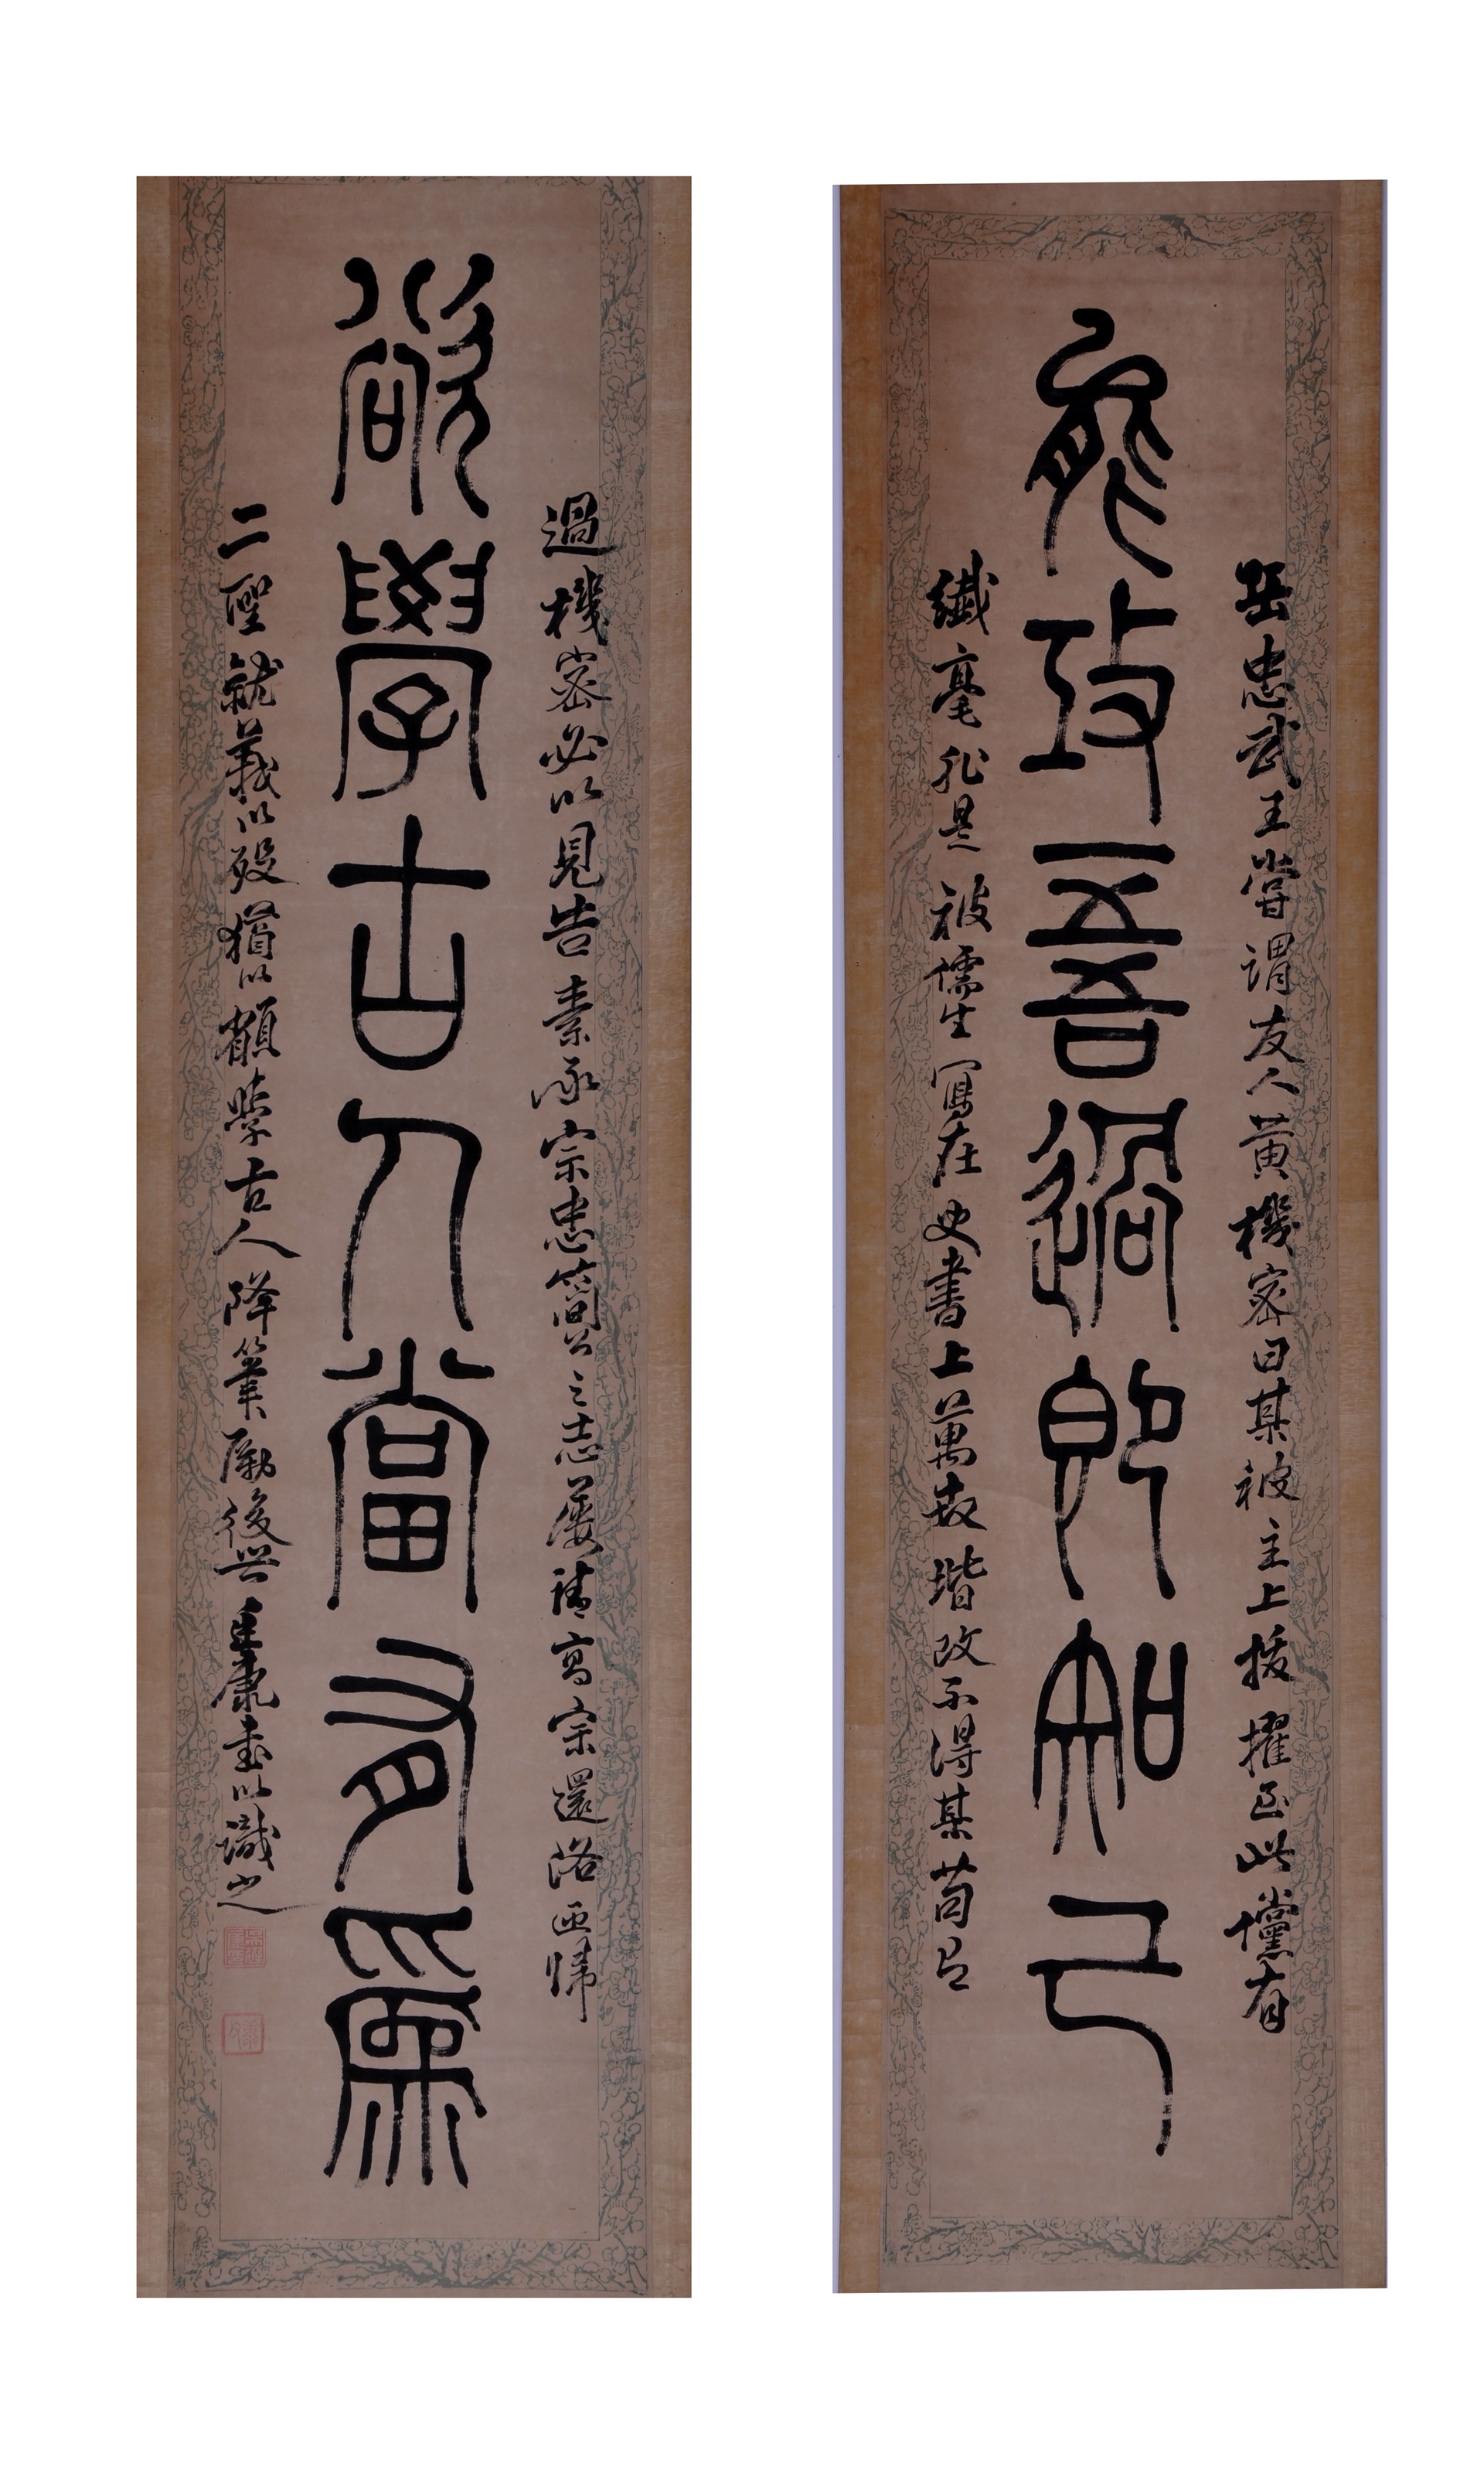 能攻吾過即知己
岳忠武王嘗謂友人黃機密曰某被主上拔擢至此儻有
纖毫非是被儒生寫在史書上萬世揩改不得某苟有
欲學古人當有為
過機密必以見告素承宗忠簡公之志屢請高宗還洛亟歸
二聖就義以歿猶以願學古人降筆勵後學康書以識之